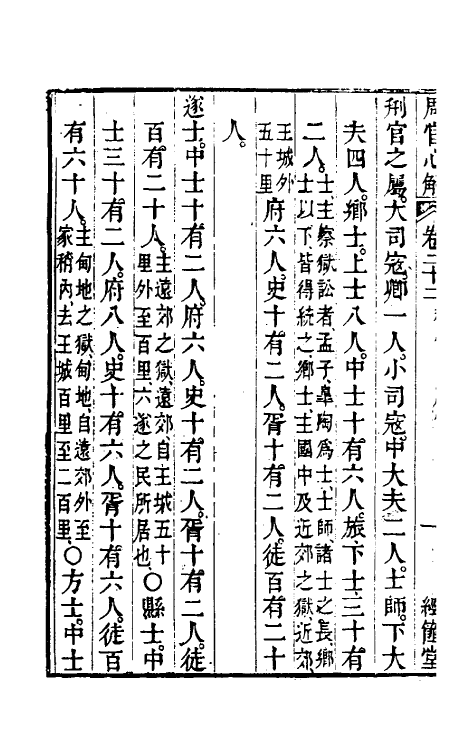 周官心解 卷二十二 經笥堂
刑官之屬。大司寇。卿一人。小司寇。中大夫二人。士師。下大
夫四人。鄉士。上士八人。中士十有六人。旅。下士三十有
二人。士主察獄訟者。孟子。皋陶爲士。士師。諸士之長。鄉
士以下皆得統之鄉士。主國中及近郊之獄。近郊。
王城外
五十里 府六人。史十有二人。胥十有二人。徒百有二十
人。
遂士。中士十有二人。府六人。史十有二人。胥十有二人。徒
百有二十人。主遠郊之獄。遠郊。自王城五十
里外至百里。六遂之民所居也。〇縣士。中
士三十有二人。府八人。史十有六人。胥十有六人。徒百
有六十人。主甸地之獄。甸地。自遠郊外至
家稍內去王城百里至二百里。〇方士。中士